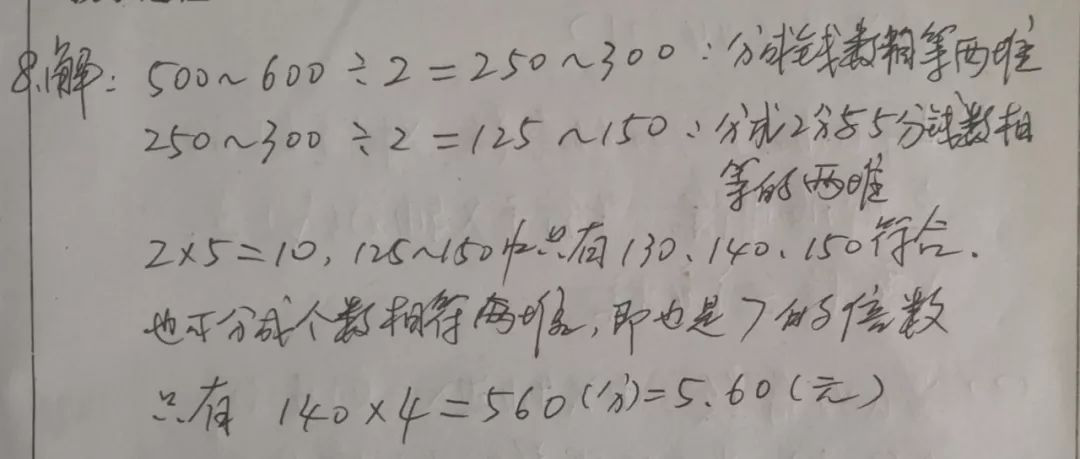 8.解：500～600÷2=250～300：分成钱数相等两堆
250～300÷2=125～150：分成2分与5分钱数相
等的两堆
2×5=10，125～150中只有130、140、150符合.
也可分成个数相等两堆，即也是7的倍数
只有 140×4=560(分)=5.60(元)